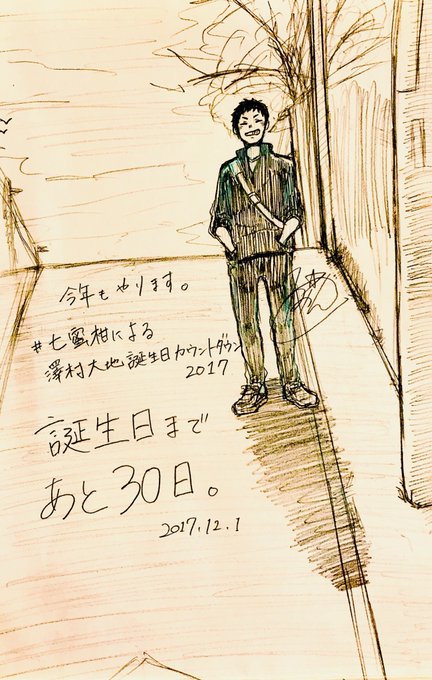 今年もやります。
#七蜜柑による
澤村大地誕生日カウントダウン
2017
誕生日まで
あと30日。
2017.12.1